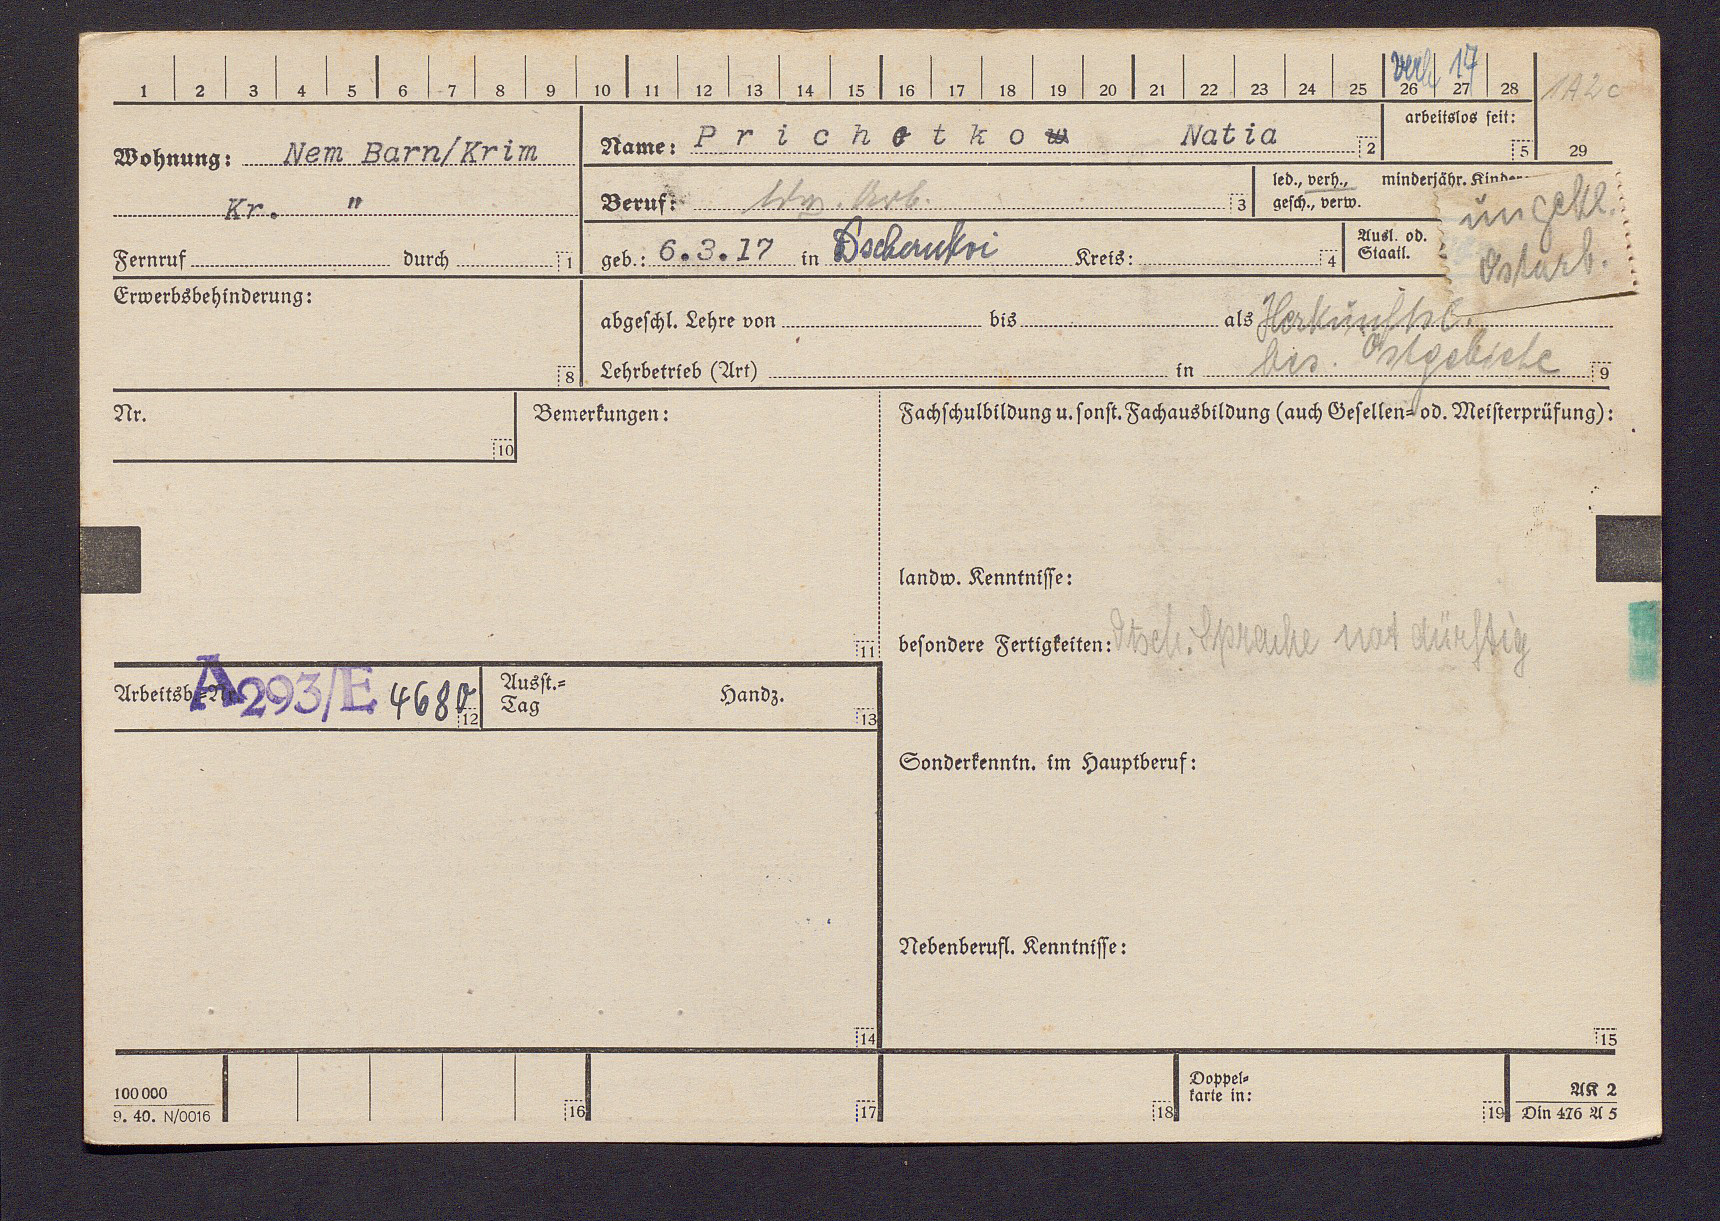 1 2 3 4 5 6 7 8 9 10 11 12 13 14 15 16 17 18 19 20 21 22 23 24 25 26 27 28
verh 17
1A2c
Wohnung: Nem Barn/Krim
Kr. "
Fernruf durch 1
Name: Prichotko Natia 2
arbeitslos seit:
5 29
Beruf: 3
led., verh., minderjähr. Kinder
gesch., verw.
geb.: 6.3.17 in Kreis: 4
Ausl. od.
Staatl.
ungekl.
Ostarb.
Erwerbsbehinderung:
8
abgeschl. Lehre von bis als Herkunftsl.
bes. Ostgebiete
Lehrbetrieb (Art) in 9
Nr.
10
Bemerkungen:
11
Fachschulbildung u. sonst. Fachausbildung (auch Gesellen- od. Meisterprüfung):
landw. Kenntnisse:
besondere Fertigkeiten: dtsch. Sprache notdürftig
Arbeitsb.-Nr. A293/E 4680 12
Ausst.-
Tag Handz. 13
Sonderkenntn. im Hauptberuf:
Nebenberufl. Kenntnisse:
14 15
100 000
9. 40. N/0016
16 17 18
Doppel-
karte in:
19
AK 2
Din 476 A 5